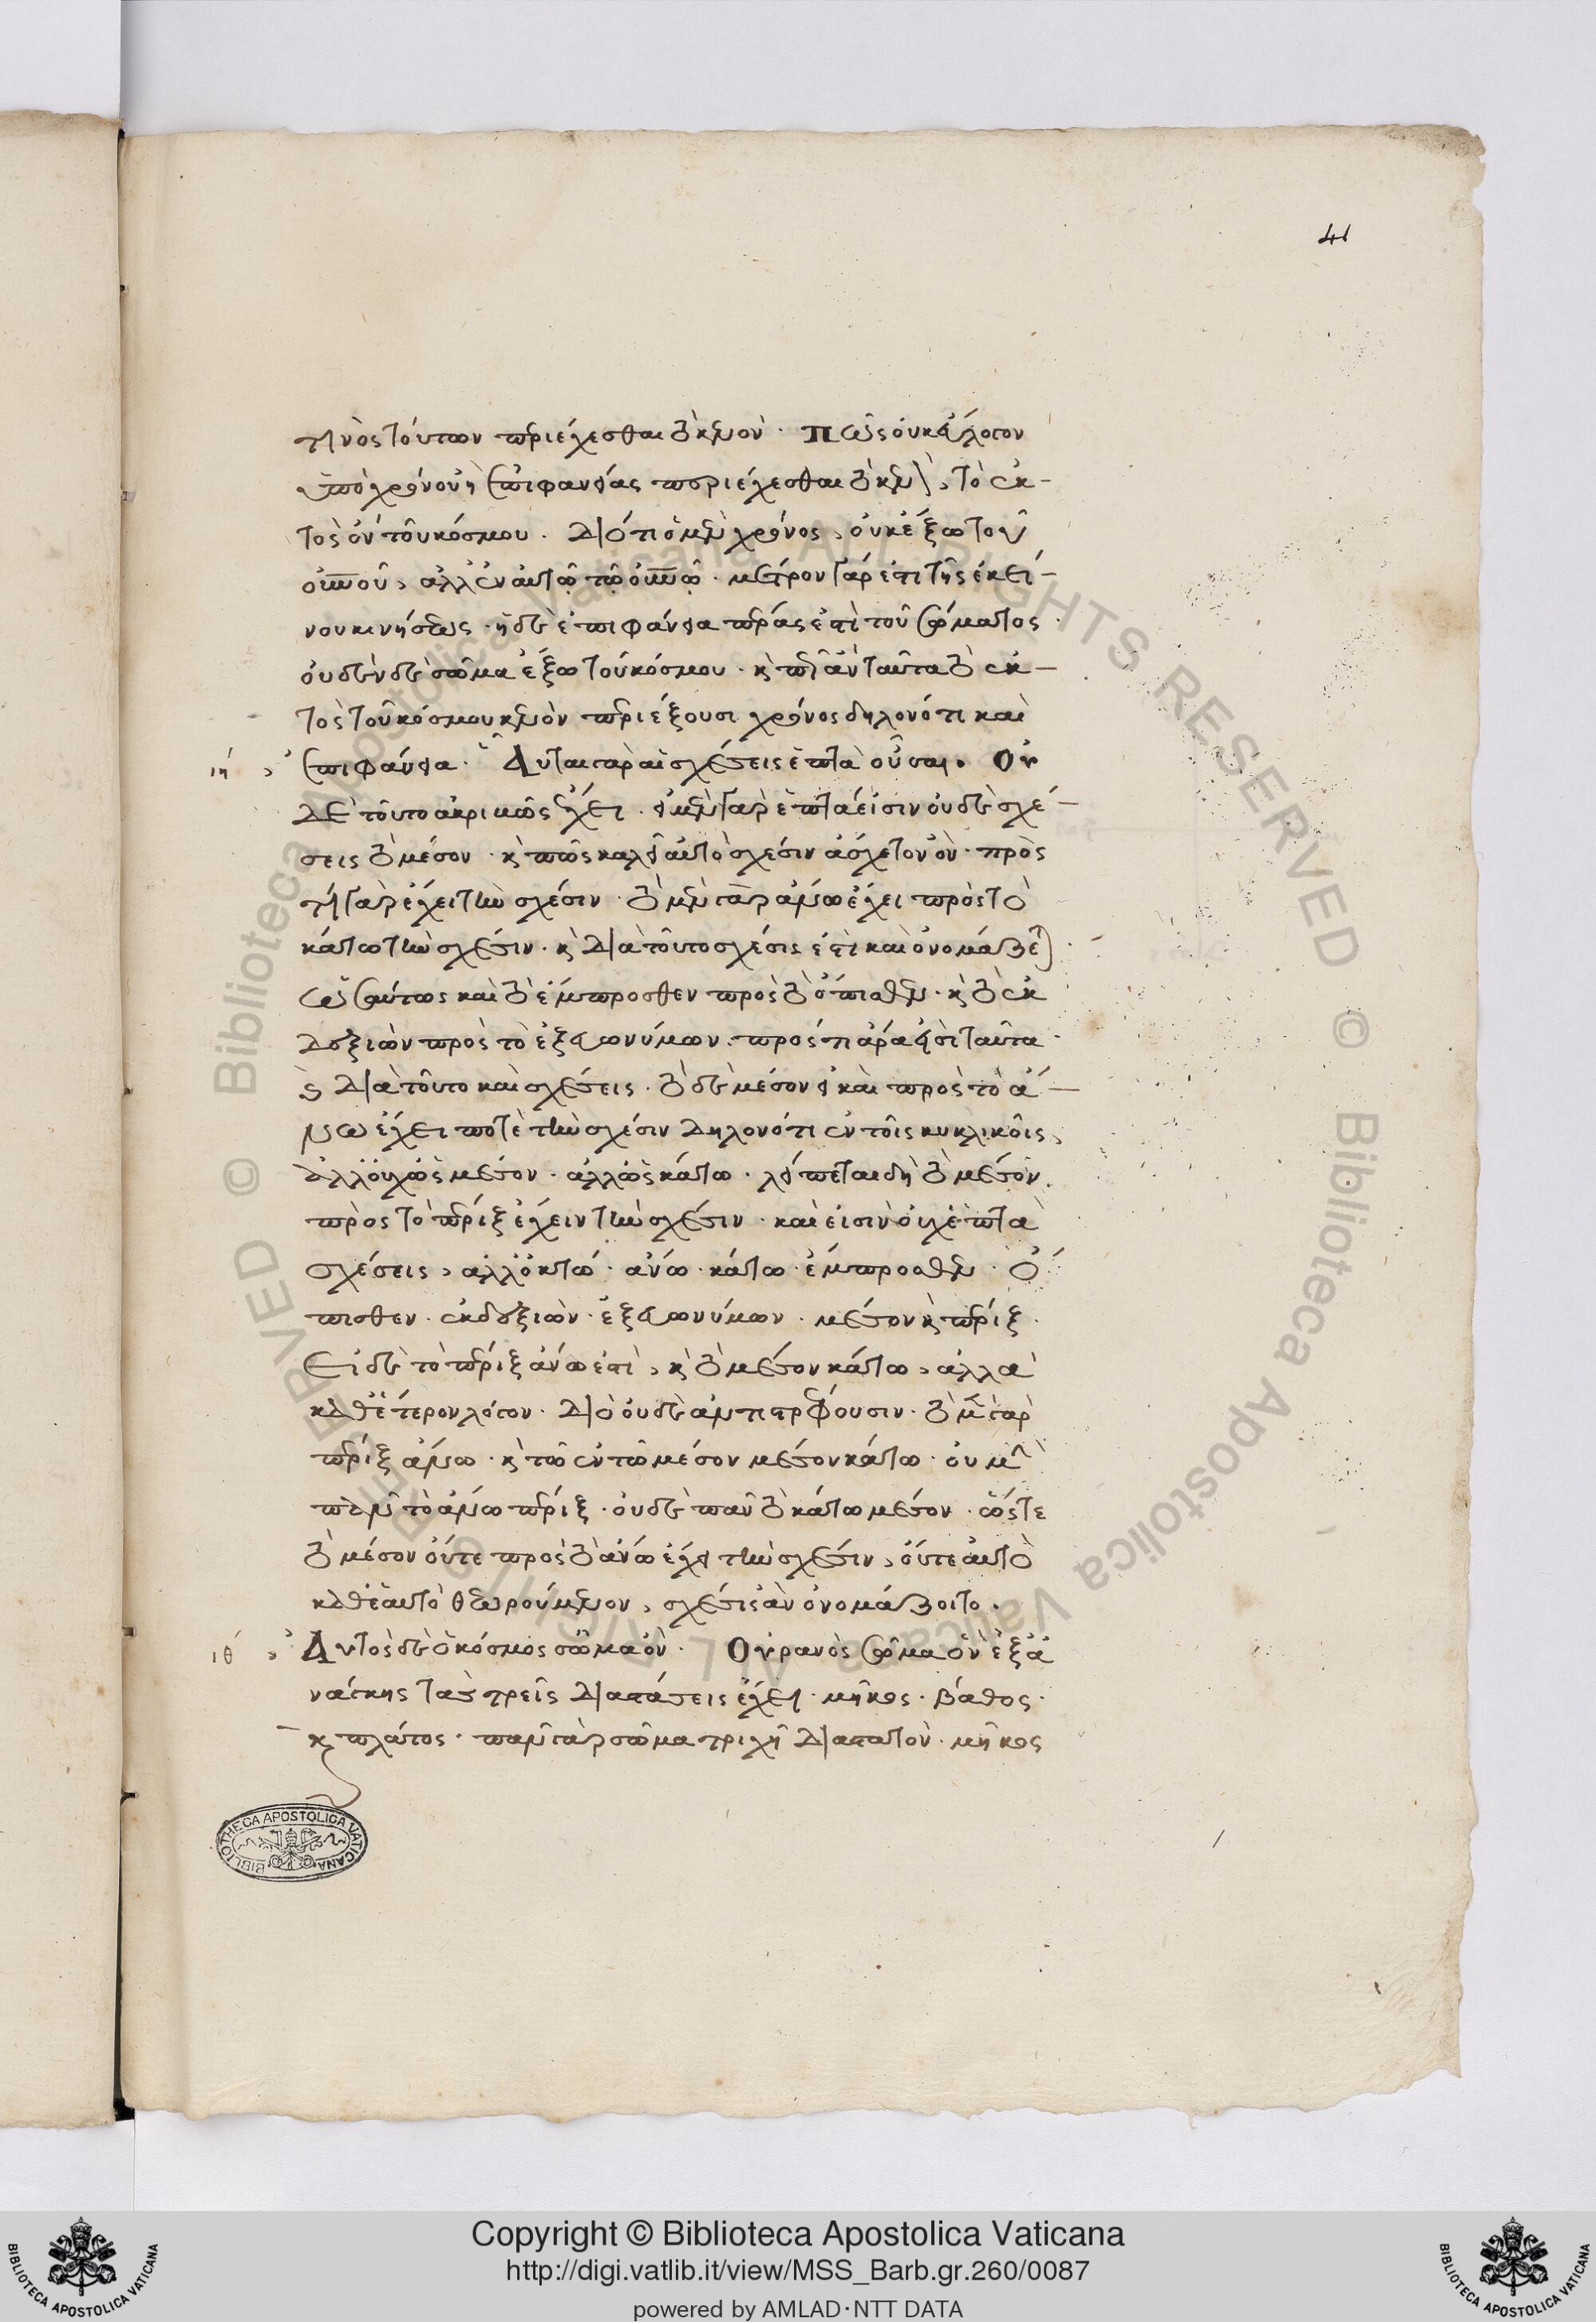 41
τινὸς τούτων περιέχεσθαι τὸ κενόν. πῶς οὐκ ἄλογον
ὑπὸ χρόνου ἢ ἐπιφανείας περιέχεσθαι τὸ κενὸν, τὸ ἐκ-
τὸς ὂν τοῦ κόσμου. διότι ὁ μὲν χρόνος, οὐκ ἔξω τοῦ
οὐνοῦ, ἀλλ' ἐν αὐτῷ τῷ οὐνῷ. μέτρον γάρ ἐστι τῆς ἐκεί-
νου κινήσεως. ἡ δὲ ἐπιφάνεια πέρας ἐστὶ τοῦ σώματος.
οὐδὲν δὲ σῶμα ἔξω τοῦ κόσμου. κ πῶς ἂν ταῦτα τὸ ἐκ-
τὸς τοῦ κόσμου κενὸν περιέξουσι χρόνος δηλονότι καὶ
ιη ἐπιφάνεια. Αὗται γὰρ αἱ σχέσεις ἑπτὰ οὖσαι. Οὐ
δὲ τοῦτο ἀκριβῶς ἔχει. εἰ μὲν γὰρ ἑπτά εἰσιν οὐδὲ σχέ-
σεις τὸ μέσον. κ πῶς καλεῖ αὐτὸ σχέσιν ἄσχετον ὄν. πρὸς
τί γὰρ ἔχει τὴν σχέσιν. τὸ μὲν γὰρ ἄνω ἔχει πρὸς τὸ
κάτω τὴν σχέσιν. κ διὰ τοῦτο σχέσις ἐστὶ καὶ ὀνομάζεται.
ὡσαύτως καὶ τὸ ἔμπροσθεν πρὸς τὸ ὄπισθεν. κ τὸ ἐκ
δεξιῶν πρὸς τὸ ἐξ εὐωνύμων. πρός τι ἄρα ἐστὶ ταῦτα.
κ διὰ τοῦτο καὶ σχέσεις. τὸ δὲ μέσον εἰ καὶ πρὸς τὸ ἄ-
νω ἔχει ποτὲ τὴν σχέσιν δηλονότι ἐν τοῖς κυκλικοῖς,
ἀλλ' οὐχ ὡς μέσον. ἀλλ' ὡς κάτω. λείπεται δὴ τὸ μέσον
πρὸς τὸ πέριξ ἔχειν τὴν σχέσιν. καὶ εἰσὶν οὐχ ἑπτὰ
σχέσεις, ἀλλ' ὀκτώ. ἄνω. κάτω. ἔμπροσθεν. ὄ
πισθεν. ἐκ δεξιῶν. ἐξ εὐωνύμων. μέσον κ πέριξ.
Εἰ δὲ τὸ πέριξ ἄνω ἐστὶ, κ τὸ μέσον κάτω, ἀλλὰ
καθ' ἕτερον λόγον. διὸ οὐδὲ ἀντιστρέφουσιν. τὸ μὲν γὰρ
πέριξ ἄνω. κ τῶ ἐν τῶ μέσον μέσον κάτω. οὐ μὴν
πᾶν τὸ ἄνω πέριξ. οὐδὲ πᾶν τὸ κάτω μέσον. ὥστε
τὸ μέσον οὔτε πρὸς τὸ ἄνω ἔχει τὴν σχέσιν, οὔτε αὐτὸ
καθ' ἑαυτὸ θεωρούμενον, σχέσις ἂν ὀνομάζοιτο.
ιθ Αὐτὸς δὲ ὁ κόσμος σῶμα ὄν. Οὐρανὸς σῶμα ὂν ἐξ ἀ
νάγκης τὰς τρεῖς διατάσεις ἔχει. μῆκος. βάθος.
κ πλάτος. πᾶν γὰρ σῶμα τριχῆ διαστατόν. μῆκος
BIBLIOTHECA APOSTOLICA VATICANA
© Biblioteca Apostolica Vaticana ALL RIGHTS RESERVED
Copyright © Biblioteca Apostolica Vaticana
http://digi.vatlib.it/view/MSS_Barb.gr.260/0087
powered by AMLAD·NTT DATA
BIBLIOTECA APOSTOLICA VATICANA
BIBLIOTECA APOSTOLICA VATICANA